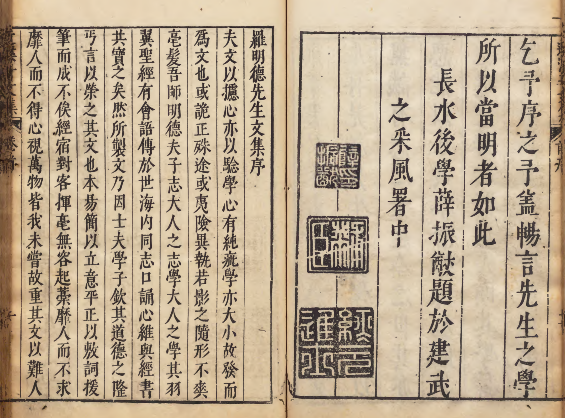 乞予序之予盖暢言先生之學
所以當明者如此
長水後學薛振猷題於建武
之采風署中
羅明德先生文集序
夫文以攄心亦以騐學心有純疵學亦大小故發而
為文也或詭正殊途或夷險異執若影之隨形不爽
毫髮吾師明德夫子志大人之志學大人之學其羽
翼聖經有會語傳於世海内同志口誦心維與經書
共寶之矣然所製文乃因士夫學子欽其道德之隆
丐言以榮之其文也本易簡以立意平正以敷詞援
筆而成不俟經宿對客揮毫無客起藁靡人而不求
靡人而不得心視萬物皆我未嘗故重其文以難人